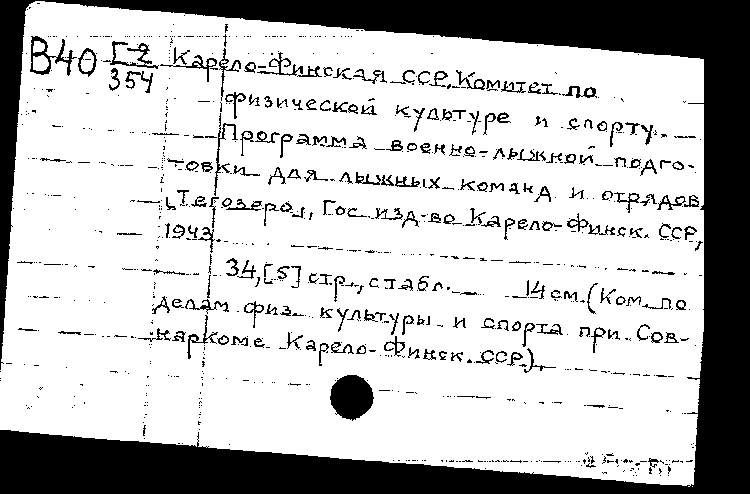 В40 Г-2/354 Карело-Финская ССР. Комитет по
физической культуре и спорту.
Программа военно-лыжной подго-
товки для лыжных команд и отрядов.
[Тегозеро], Гос изд-во Карело-Финск. ССР,
1943.
34, [5] стр., с табл. 14 см. (Ком. по
делам физ. культуры и спорта при Сов-
наркоме Карело-Финск. ССР).